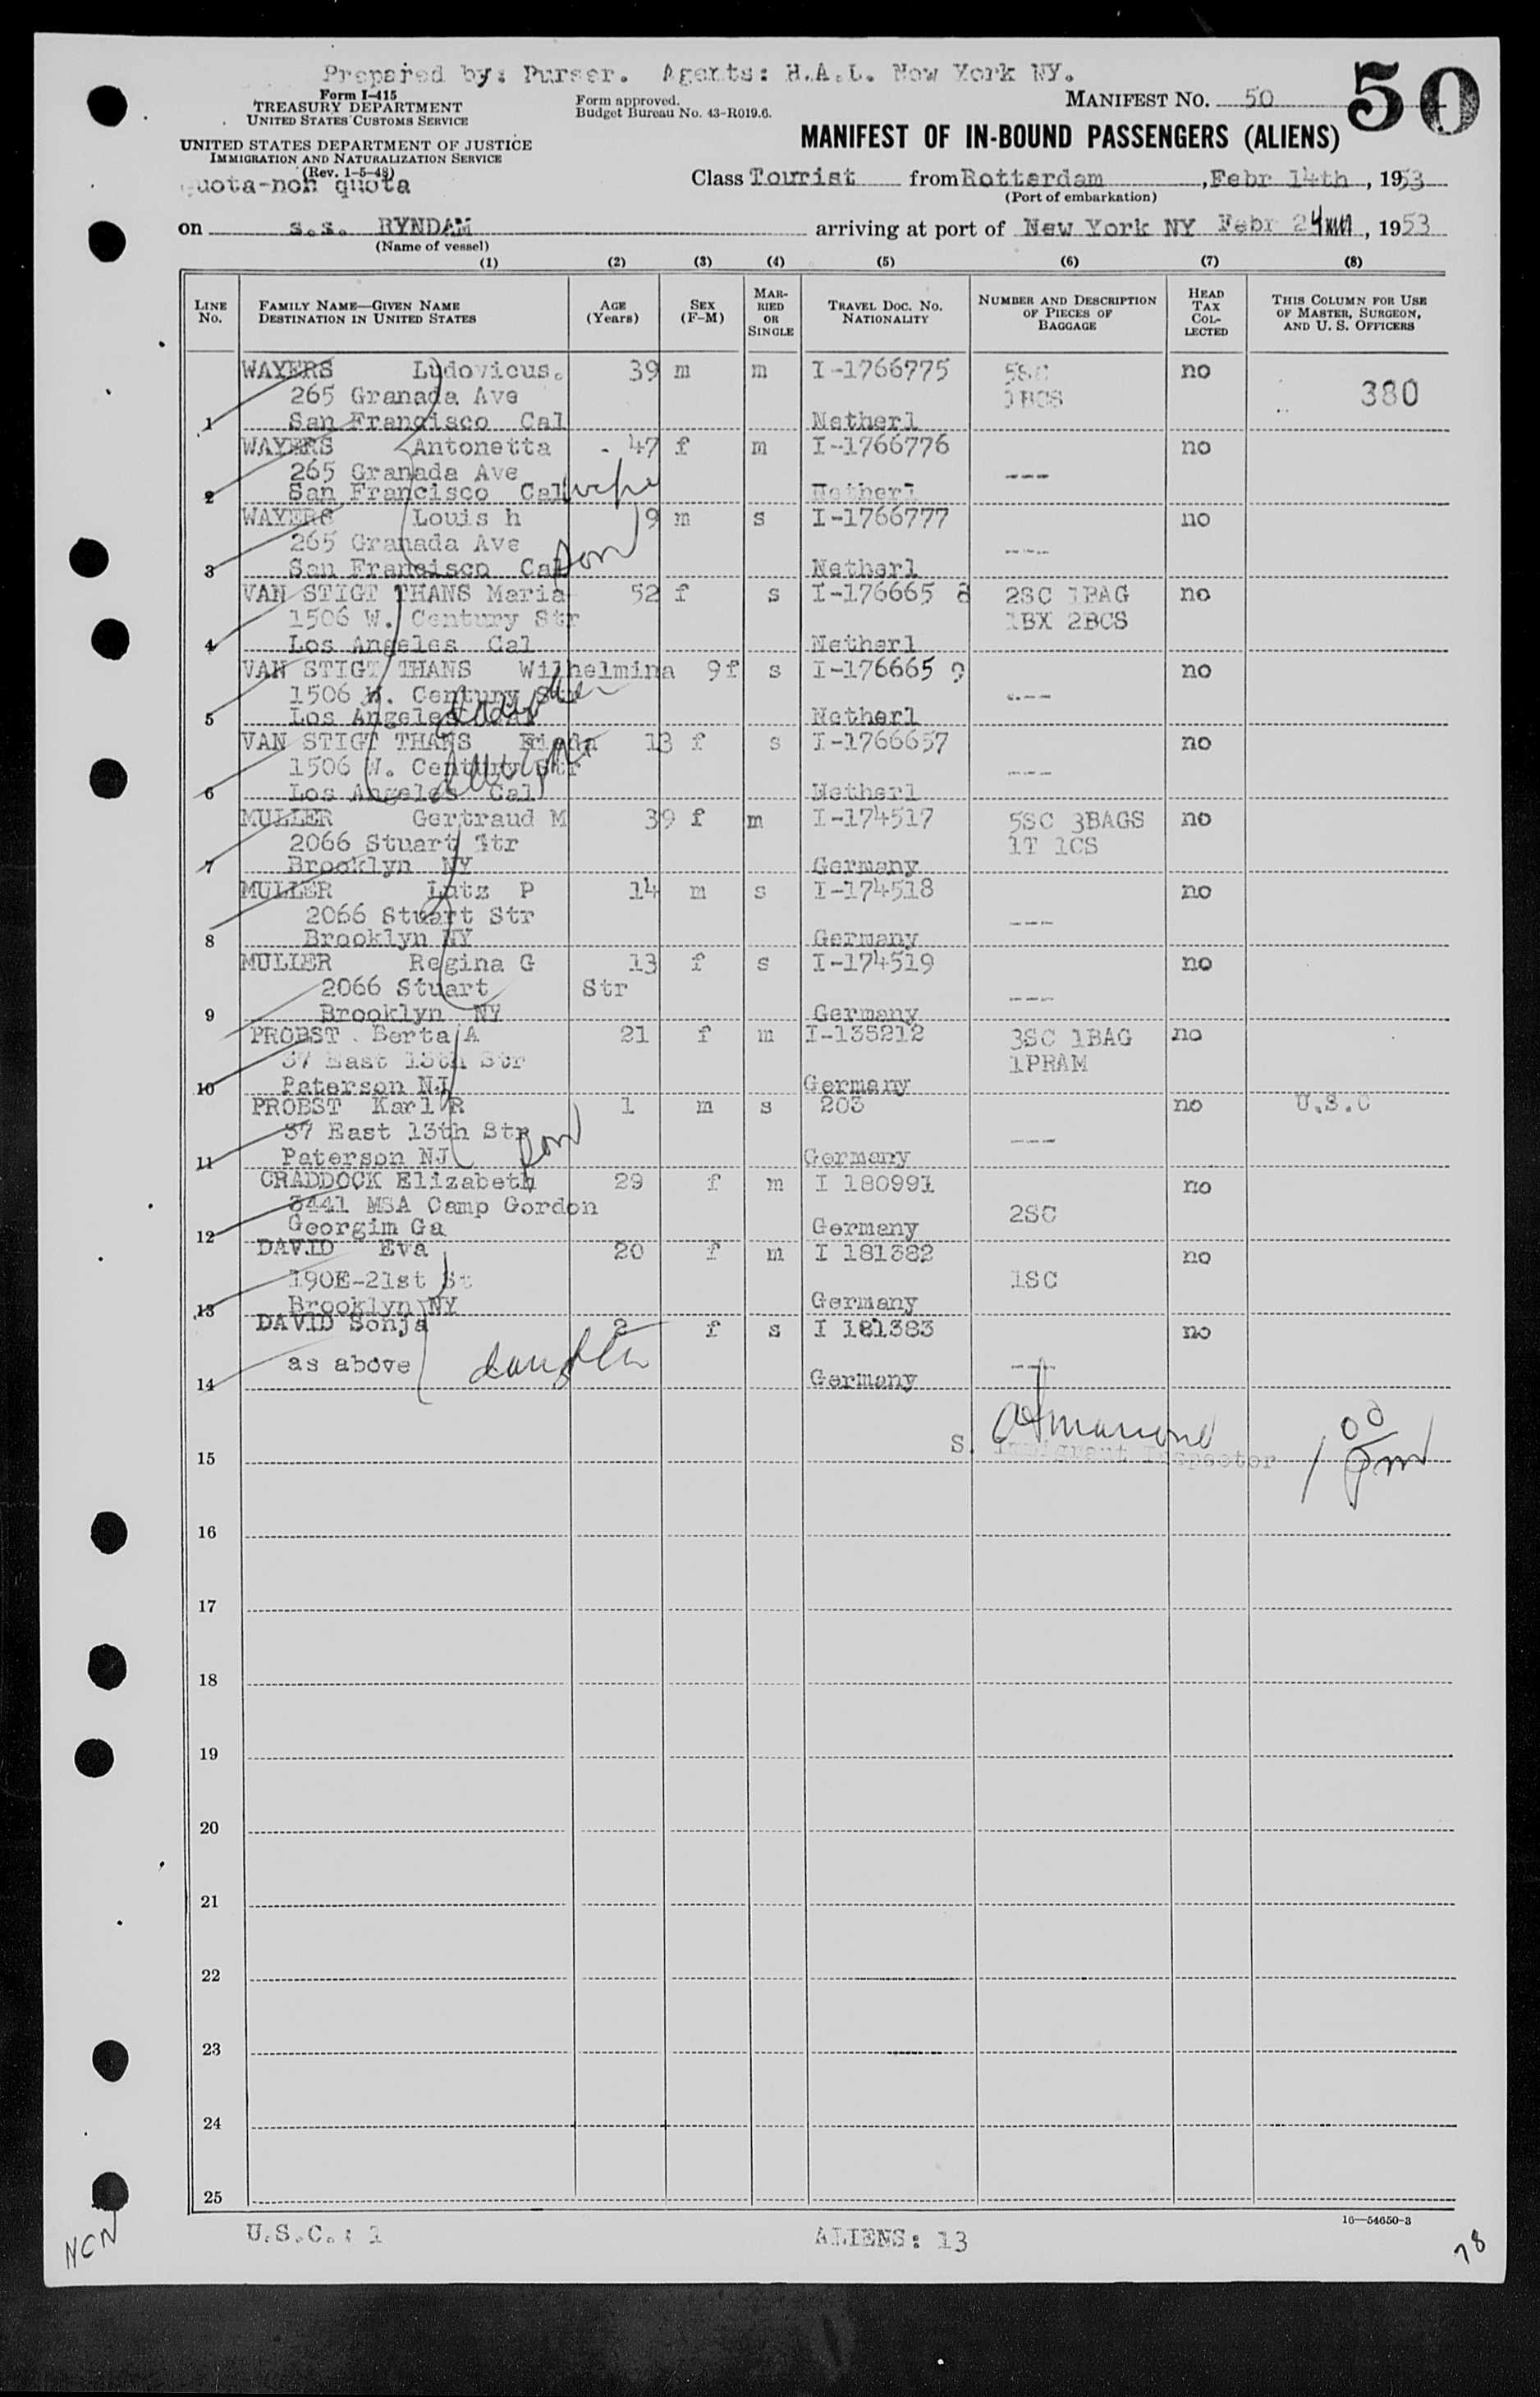 Prepared by: Purser. Agents: H.A.L. New York NY.
Form I-415
TREASURY DEPARTMENT
UNITED STATES CUSTOMS SERVICE
Form approved.
Budget Bureau No. 43-R019.6.
MANIFEST NO. 50
50
UNITED STATES DEPARTMENT OF JUSTICE
IMMIGRATION AND NATURALIZATION SERVICE
(Rev. 1-5-48)
MANIFEST OF IN-BOUND PASSENGERS (ALIENS)
quota-non quota
Class Tourist from Rotterdam, Febr 14th, 1953
(Port of embarkation)
on s.s. RYNDAM arriving at port of New York NY Febr 24, 1953
(Name of vessel)
(1) (2) (3) (4) (5) (6) (7) (8)
LINE No. FAMILY NAME—GIVEN NAME DESTINATION IN UNITED STATES AGE (Years) SEX (F-M) MARRIED OR SINGLE TRAVEL DOC. NO. NATIONALITY NUMBER AND DESCRIPTION OF PIECES OF BAGGAGE HEAD TAX COLLECTED THIS COLUMN FOR USE OF MASTER, SURGEON, AND U. S. OFFICERS
WAYERS Ludovicus. 39 m m I-1766775 5SC no
265 Granada Ave BCS 380
1 San Francisco Cal Netherl
WAYERS Antonetta 47 f m I-1766776 no
265 Granada Ave ---
2 San Francisco Cal wife Netherl
WAYERS Louis h 9 m s I-1766777 no
265 Granada Ave ---
3 San Francisco Cal son Netherl
VAN STIGT THANS Maria 52 f s I-176665 2SC 1BAG no
1506 W. Century Str 1BX 2BCS
4 Los Angeles Cal Netherl
VAN STIGT THANS Wilhelmina 9 f s I-176665 9 no
1506 W. Century Str daughter ---
5 Los Angeles Cal Netherl
VAN STIGT THANS 13 f s I-1766657 no
1506 W. Century Str daughter ---
6 Los Angeles Cal Netherl
MULLER Gertraud M 39 f m I-174517 5SC 3BAGS no
2066 Stuart Str 1T 1CS
7 Brooklyn NY Germany
MULLER Lutz P 14 m s I-174518 no
2066 Stuart Str ---
8 Brooklyn NY Germany
MULLER Regina G 13 f s I-174519 no
2066 Stuart Str ---
9 Brooklyn NY Germany
PROBST Berta A 21 f m I-135212 3SC 1BAG no
37 East 13th Str 1PRAM
10 Paterson NJ Germany
PROBST Karl R 1 m s 203 no U.S.C
37 East 13th Str ---
11 Paterson NJ son Germany
CRADDOCK Elizabeth 29 f m I 180991 no
3441 MSA Camp Gordon 2SC
12 Georgim Ga Germany
DAVID Eva 20 f m I 181382 no
190E-21st St 1SC
13 Brooklyn NY Germany
DAVID Sonja 2 f s I 181383 no
as above daughter ---
14 Germany
15 S. Immigrant Inspector 1 00 pm
16
17
18
19
20
21
22
23
24
25
16—54650-3
U.S.C.: 1 ALIENS: 13
NCN
78